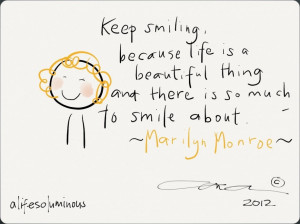 Keep smiling,
because life is a
beautiful thing
and there is so much
to smile about.
~Marilyn Monroe~
©
alifesoluminous
2012